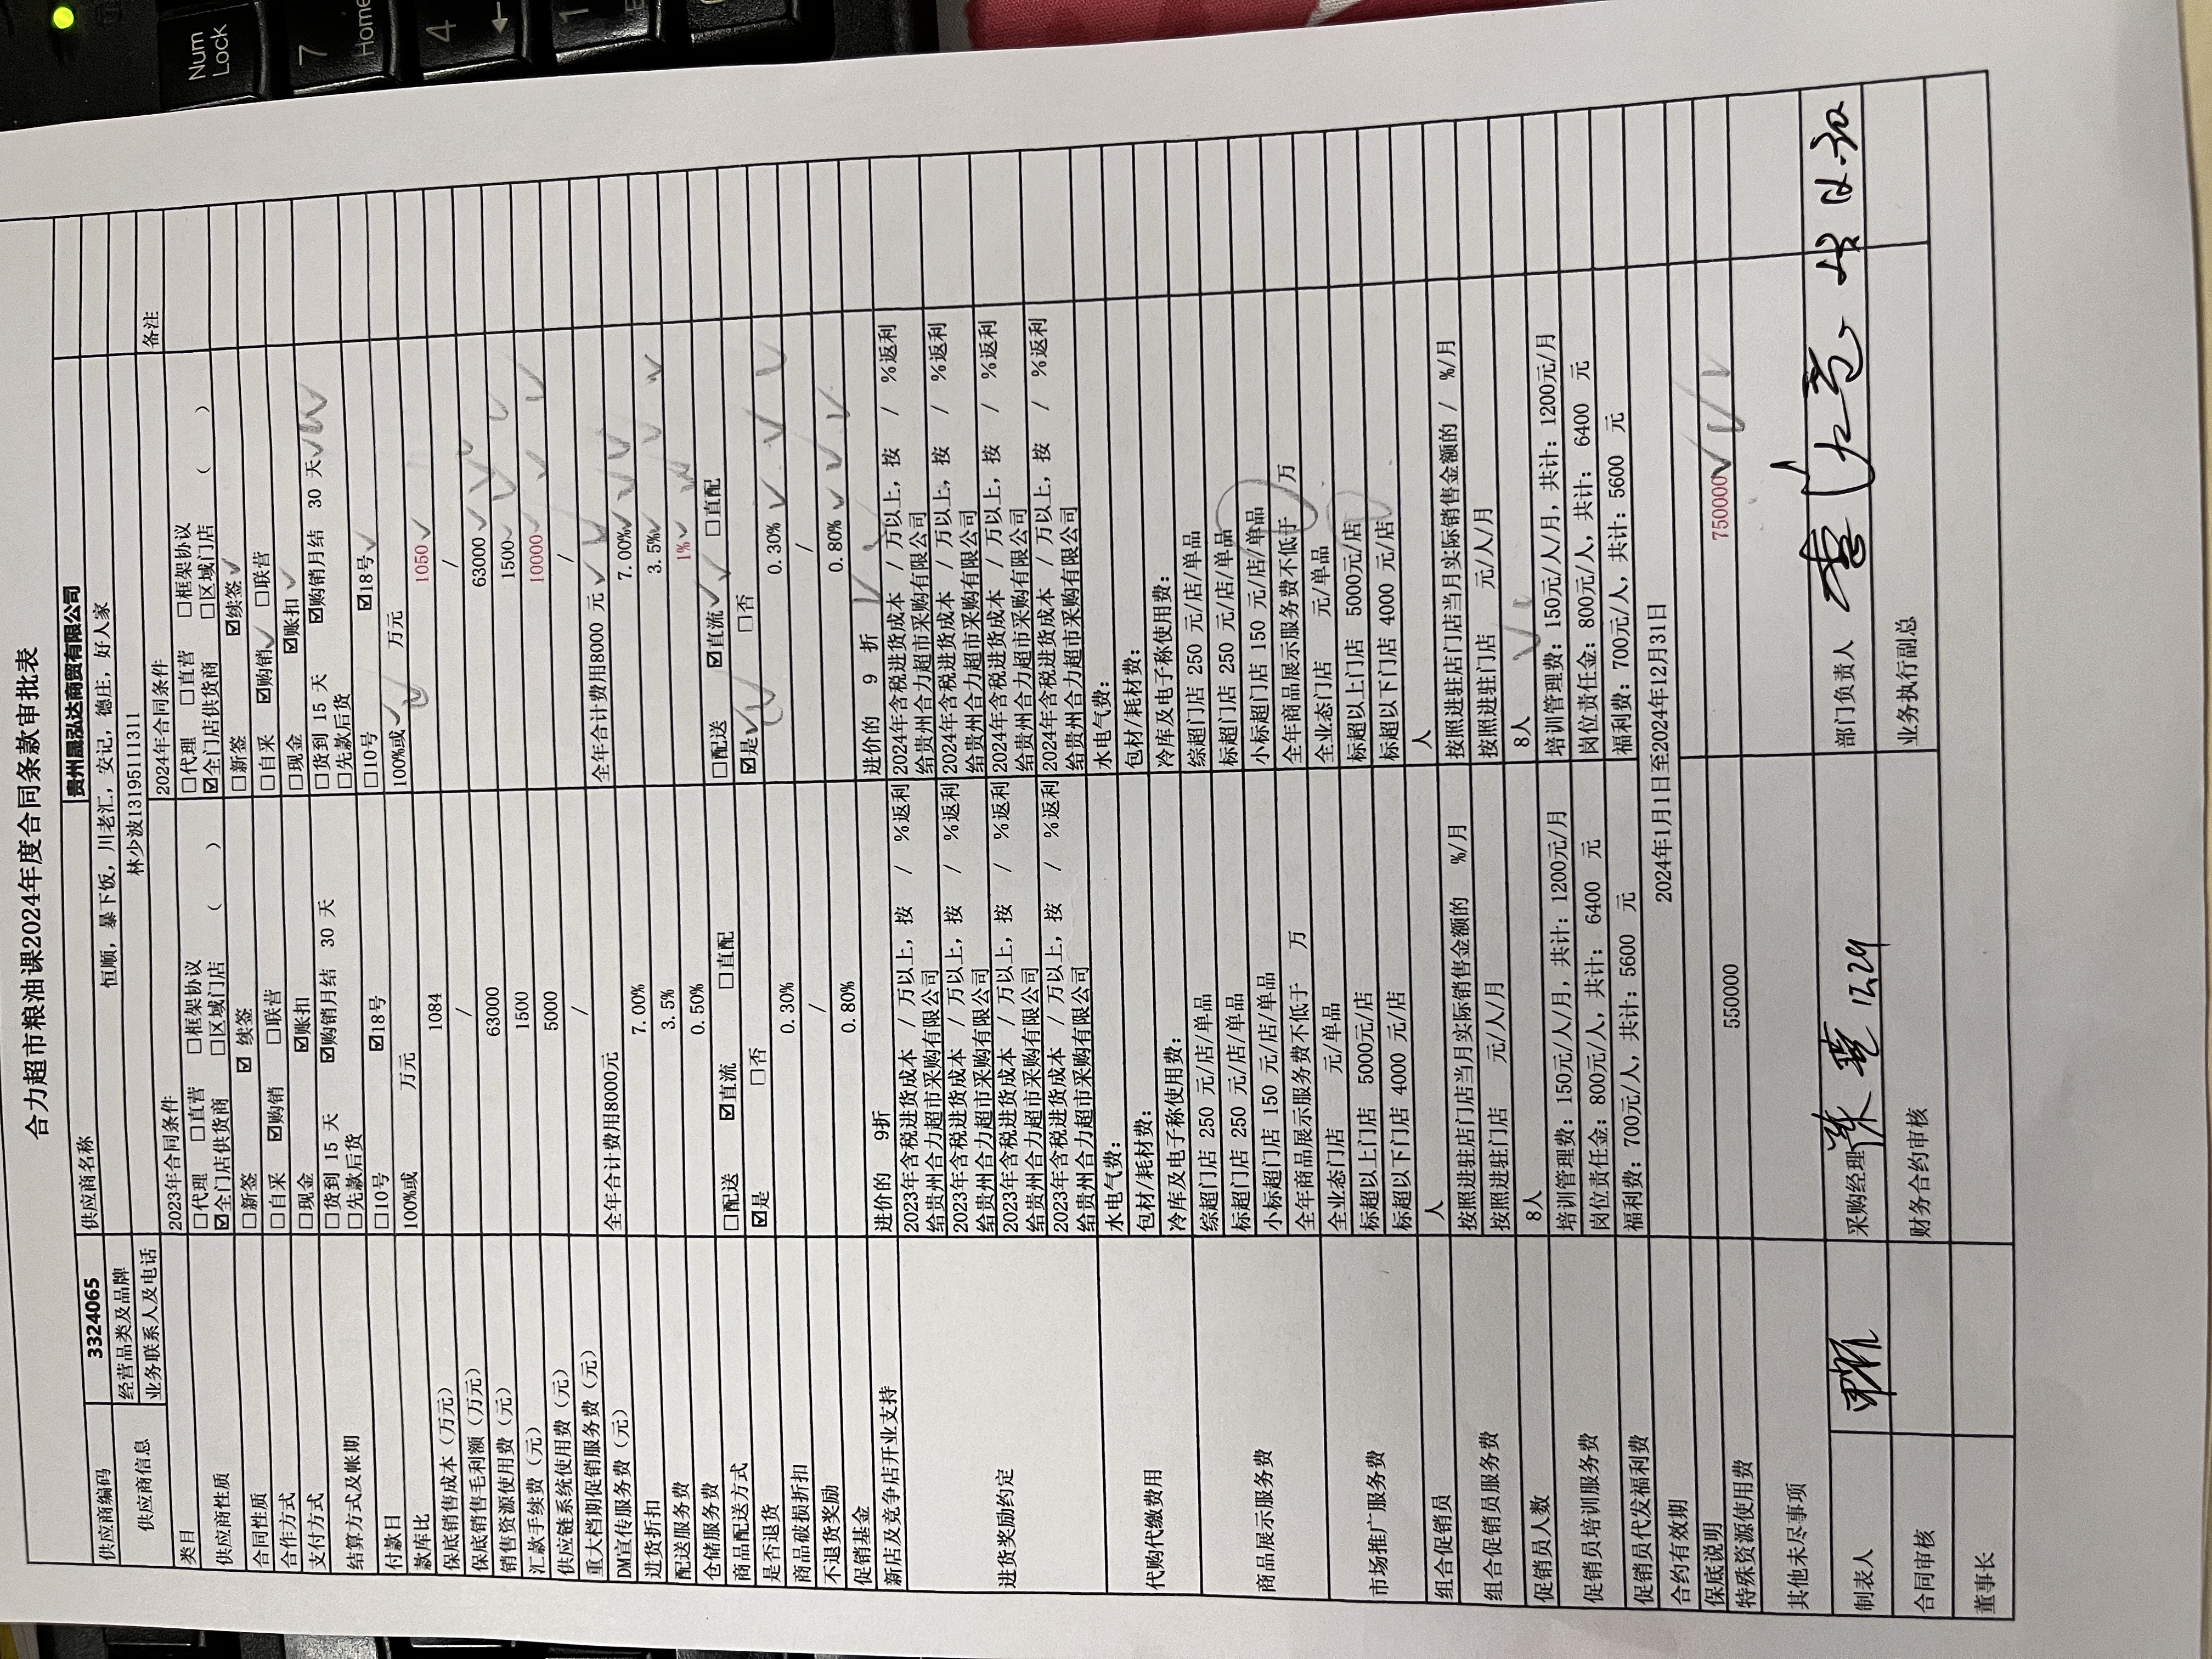 合力超市粮油课2024年度合同条款审批表
供应商编码 3324065 供应商名称 贵州晟泓达商贸有限公司
供应商信息 经营品类及品牌 恒顺，暴下饭，川老汇，安记，德庄，好人家
业务联系人及电话 林少波13195111311
类目 2023年合同条件 2024年合同条件 备注
供应商性质 □代理 □直营 □框架协议 □代理 □直营 □框架协议
☑全门店供货商 □区域门店 （ ） ☑全门店供货商 □区域门店 （ ）
合同性质 □新签 ☑ 续签 □新签 ☑续签
合作方式 □自采 ☑购销 □联营 □自采 ☑购销 □联营
支付方式 □现金 ☑账扣 □现金 ☑账扣
结算方式及帐期 □货到 15 天 ☑购销月结 30 天 □货到 15 天 ☑购销月结 30 天
□先款后货 □先款后货
付款日 □10号 ☑18号 □10号 ☑18号
款库比 100%或 万元 100%或 万元
保底销售成本（万元） 1084 1050
保底销售毛利额（万元） / /
销售资源使用费（元） 63000 63000
汇款手续费（元） 1500 1500
供应链系统使用费（元） 5000 10000
重大档期促销服务费（元） / /
DM宣传服务费（元） 全年合计费用8000元 全年合计费用8000 元
进货折扣 7.00% 7.00%
配送服务费 3.5% 3.5%
仓储服务费 0.50% 1%
商品配送方式 □配送 ☑直流 □直配 □配送 ☑直流 □直配
是否退货 ☑是 □否 ☑是 □否
商品破损折扣 0.30% 0.30%
不退货奖励 / /
促销基金 0.80% 0.80%
新店及竞争店开业支持 进价的 9折 进价的 9 折
进货奖励约定 2023年含税进货成本 / 万以上，按 / %返利 2024年含税进货成本 / 万以上，按 / %返利
给贵州合力超市采购有限公司 给贵州合力超市采购有限公司
2023年含税进货成本 / 万以上，按 / %返利 2024年含税进货成本 / 万以上，按 / %返利
给贵州合力超市采购有限公司 给贵州合力超市采购有限公司
2023年含税进货成本 / 万以上，按 / %返利 2024年含税进货成本 / 万以上，按 / %返利
给贵州合力超市采购有限公司 给贵州合力超市采购有限公司
2023年含税进货成本 / 万以上，按 / %返利 2024年含税进货成本 / 万以上，按 / %返利
给贵州合力超市采购有限公司 给贵州合力超市采购有限公司
代购代缴费用 水电气费： 水电气费：
包材/耗材费： 包材/耗材费：
冷库及电子称使用费： 冷库及电子称使用费：
商品展示服务费 综超门店 250 元/店/单品 综超门店 250 元/店/单品
标超门店 250 元/店/单品 标超门店 250 元/店/单品
小标超门店 150 元/店/单品 小标超门店 150 元/店/单品
全年商品展示服务费不低于 万 全年商品展示服务费不低于 万
市场推广服务费 全业态门店 元/单品 全业态门店 元/单品
标超以上门店 5000元/店 标超以上门店 5000元/店
标超以下门店 4000 元/店 标超以下门店 4000 元/店
组合促销员 人 人
组合促销员服务费 按照进驻店门店当月实际销售金额的 %/月 按照进驻店门店当月实际销售金额的 / %/月
按照进驻门店 元/人/月 按照进驻门店 元/人/月
促销员人数 8人 8人
促销员培训服务费 培训管理费：150元/人/月，共计：1200元/月 培训管理费：150元/人/月，共计：1200元/月
岗位责任金：800元/人，共计： 6400 元 岗位责任金：800元/人，共计： 6400 元
促销员代发福利费 福利费：700元/人，共计：5600 元 福利费：700元/人，共计：5600 元
合约有效期 2024年1月1日至2024年12月31日
保底说明
特殊资源使用费 550000 750000
其他未尽事项
制表人 采购经理 部门负责人
合同审核 财务合约审核 业务执行副总
董事长
Num
Lock
7
Home
4
←
1